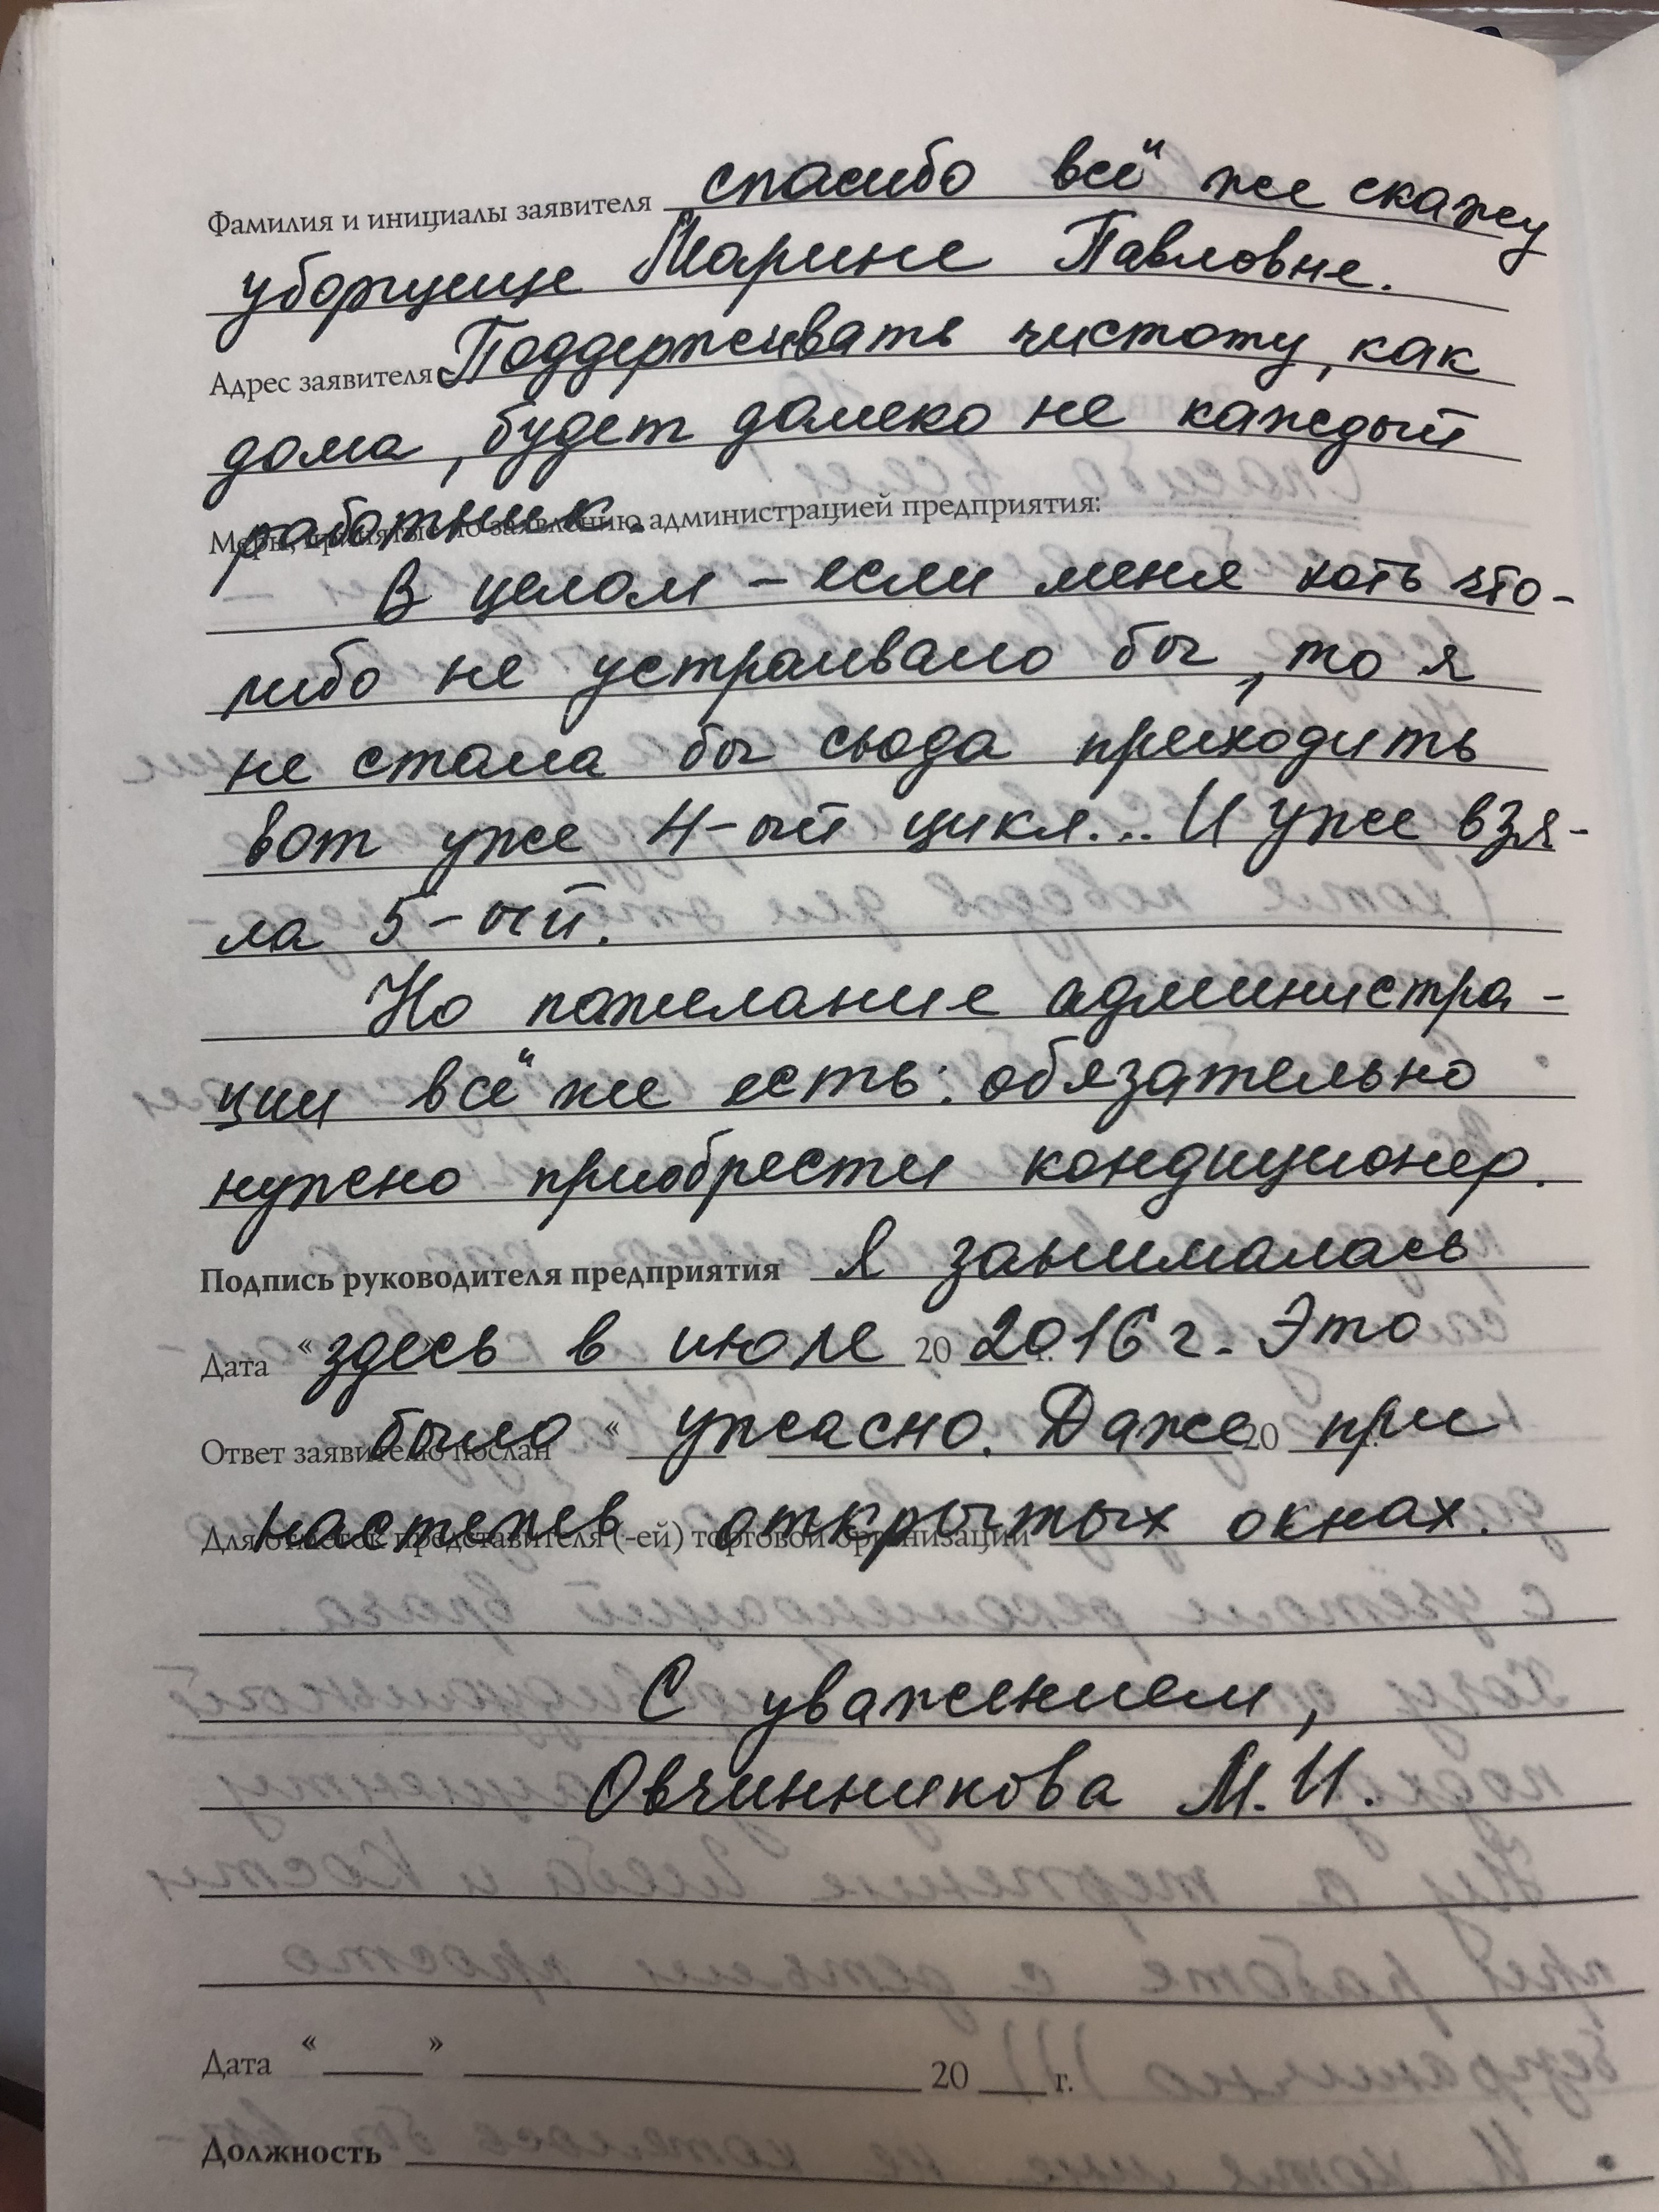 Фамилия и инициалы заявителя спасибо всё же скажу
уборщице Марине Павловне.
Адрес заявителя Поддерживать чистоту, как
дома, будет далеко не каждый
работник.
Меры, принятые по заявлению администрацией предприятия:
В целом – если меня хоть что-
либо не устраивало бы, то я
не стала бы сюда приходить
вот уже 4-ый цикл... И уже взя-
ла 5-ый.
Но пожелание администра-
ции всё же есть: обязательно
нужно приобрести кондиционер.
Подпись руководителя предприятия Я занималась
Дата « здесь » в июле 20 2016 г. Это
Ответ заявителю послан было « ужасно. Даже 20 при
настежев открытых окнах.
Для отметок представителя (-ей) торговой организации
С уважением,
Овчинникова М.И.
Дата « » 20 г.
Должность